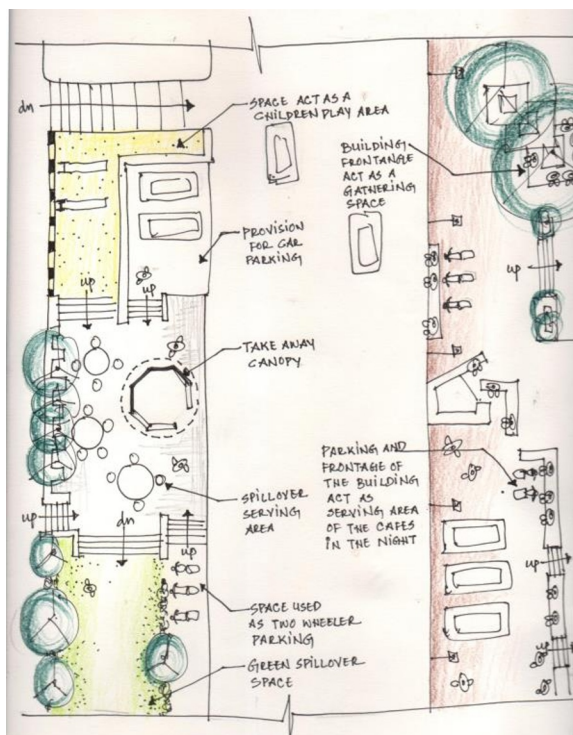 dn
SPACE ACT AS A
CHILDREN PLAY AREA
BUILDING
FRONTANGE
ACT AS A
GATHERING
SPACE
PROVISION
FOR CAR
PARKING
up
up
up
TAKE AWAY
CANOPY
PARKING AND
FRONTAGE OF
THE BUILDING
ACT AS
SERVING AREA
OF THE CAFES
IN THE NIGHT
SPILLOVER
SERVING
AREA
up
dn
up
up
SPACE USED
AS TWO WHEELER
PARKING
GREEN SPILLOVER
SPACE